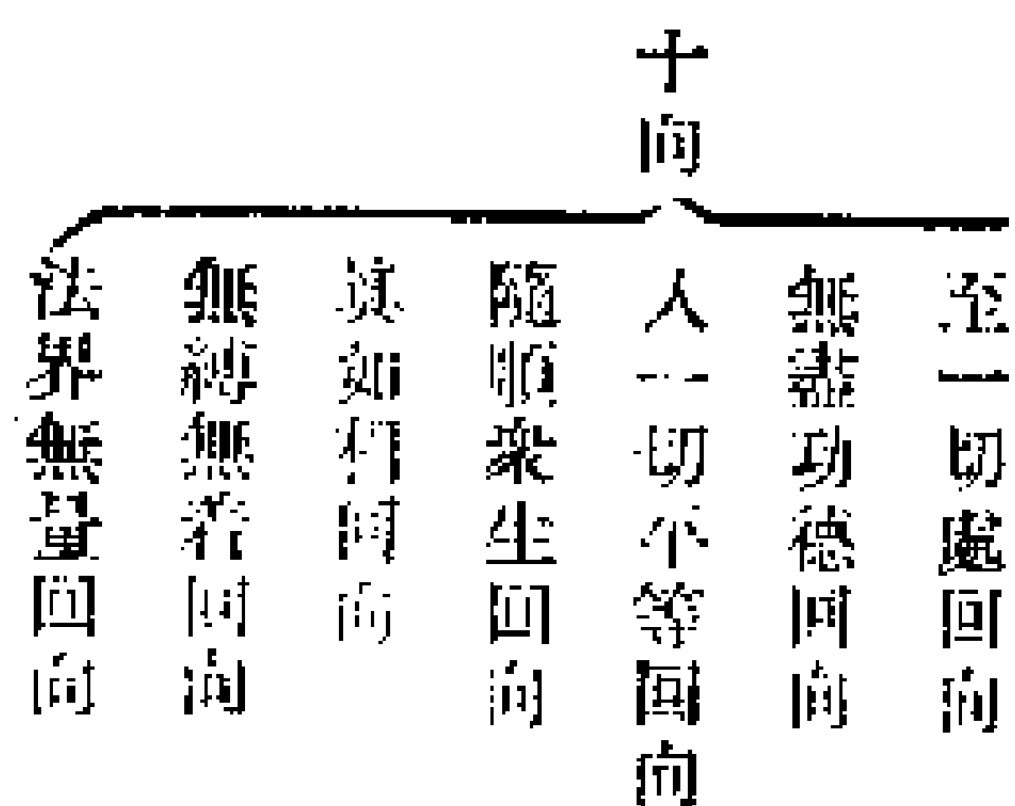 十向
至一切處回向
無盡功德回向
入一切平等回向
隨順衆生回向
真如相回向
無縛無着回向
法界無量回向